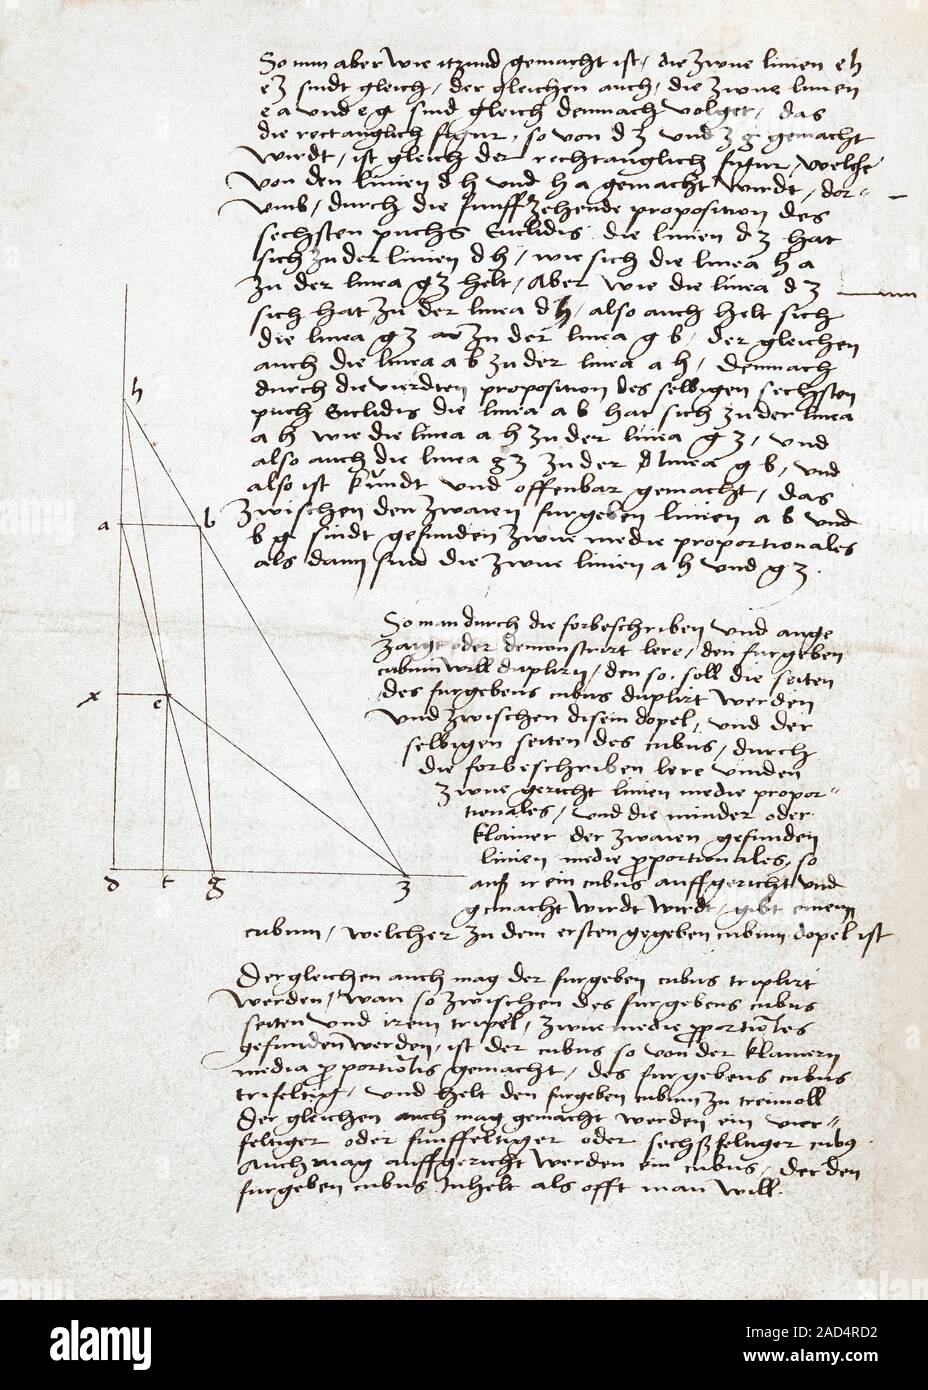 So nun aber wie itzund gemacht ist / die zwue linien e h
e z sindt gleich / der gleichen auch / die zwue linien
e a und e g sind gleich demnach volget / das
die rectanglich figur / so von d z und z g gemacht
wirdt / ist gleich der rechtanglich figur / welche
von den linien d h und h a gemacht wirdt / dor=
umb / durch die funffzehende proposition des
sechsten puchs Euclidis die linien d z hat
sich zu der linien d h / wie sich die linea h a
zu der linea g z helt / Aber wie die linea d z
sich hat zu der linea d h / also auch helt sich
die linea g z zu der linea g b / der gleichen
auch die linea a b zu der linea a h / Demnach
durch die vierdten proposition des selbigen sechsten
puch Euclidis die linea a b hat sich zu der linea
a h wie die linea a h zu der linea g z / und
also auch die linea g z zu der linea g b / und
also ist kundt und offenbar gemacht / das
zwischen den zwaien furgeben linien a b und
b g sindt gefunden zwue medie proportionales
als dann sind die zwue linien a h und g z .
So man durch die forbeschriben und ange
zaigt oder demonstrirt lere / den furgeben
cubum will duplirn / den so soll die seiten
des furgebens cubus duplirt werden
und zwischen disem dopel / und der
selbigen seiten des cubus / durch
die forbeschriben lere vinden
zwue gericht linien medie propor=
tionales / und die minder oder
klainer der zwaien gefunden
linien medie proportionales / so
auß ir ein cubus auffgericht und
gemacht wirdt wirdt / gibt einem
cubum / welcher zu dem ersten gegeben cubum dopel ist
Dergleichen auch mag der furgeben cubus triplirt
werden / wan so zwischen des furgebens cubus
seiten und irem tripel / zwue medie proportiones
gefunden werden / ist der cubus so von der klainern
media proportionalis gemacht / des furgebens cubus
trifeltig / und helt den furgeben cubum zu treimoll
Der gleichen auch mag gemacht werden ein vier=
feltiger oder funffeltiger oder sechßfeltiger cubus .
Auch mag auffgericht werden ein cubus / der den
furgeben cubus Inhelt als offt man will .
h
a b
x e
d t g z
alamy
Image ID: 2AD4RD2
www.alamy.com